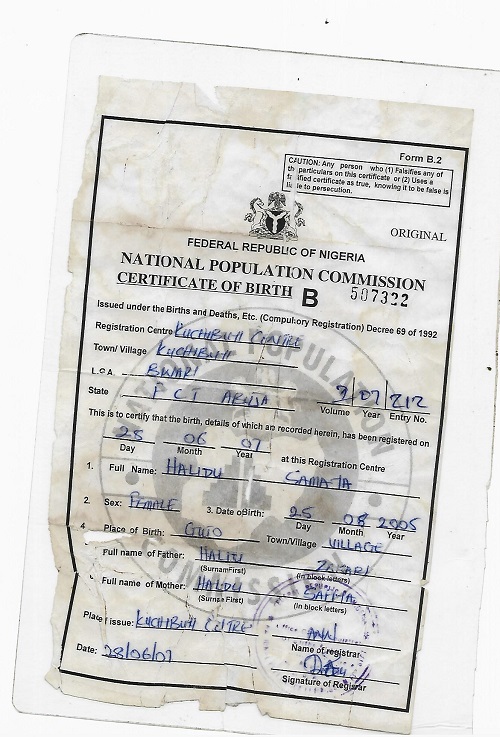 Form B.2
CAUTION: Any person who (1) Falsifies any of
th particulars on this certificate or (2) Uses a
f ified certificate as true, knowing it to be false is
li le to persecution.
ORIGINAL
FEDERAL REPUBLIC OF NIGERIA
NATIONAL POPULATION COMMISSION
CERTIFICATE OF BIRTH B 507322
Issued under the Births and Deaths, Etc. (Compulsory Registration) Decree 69 of 1992
Registration Centre KUCHIBUHI CENTRE
Town/ Village KUCHIBUHI
L.G.A. BWARI
State F C T ABUJA 2/07/212
Volume Year Entry No.
This is to certify that the birth, details of which are recorded herein, has been registered on
28 06 07
Day Month Year at this Registration Centre
1. Full Name: HALIDU
2. Sex: FEMALE 3. Date of Birth: 25 08 2005
Day Month Year
4 Place of Birth: Town/Village VILLAGE
Full name of Father:
(SurnamFirst) (In block letters)
Full name of Mother: HALIDU SALMA
(Surname First) (In block letters)
Place f issue: KUCHIBUHI CENTRE
Name of registrar
Date: 28/06/07
Signature of Registrar